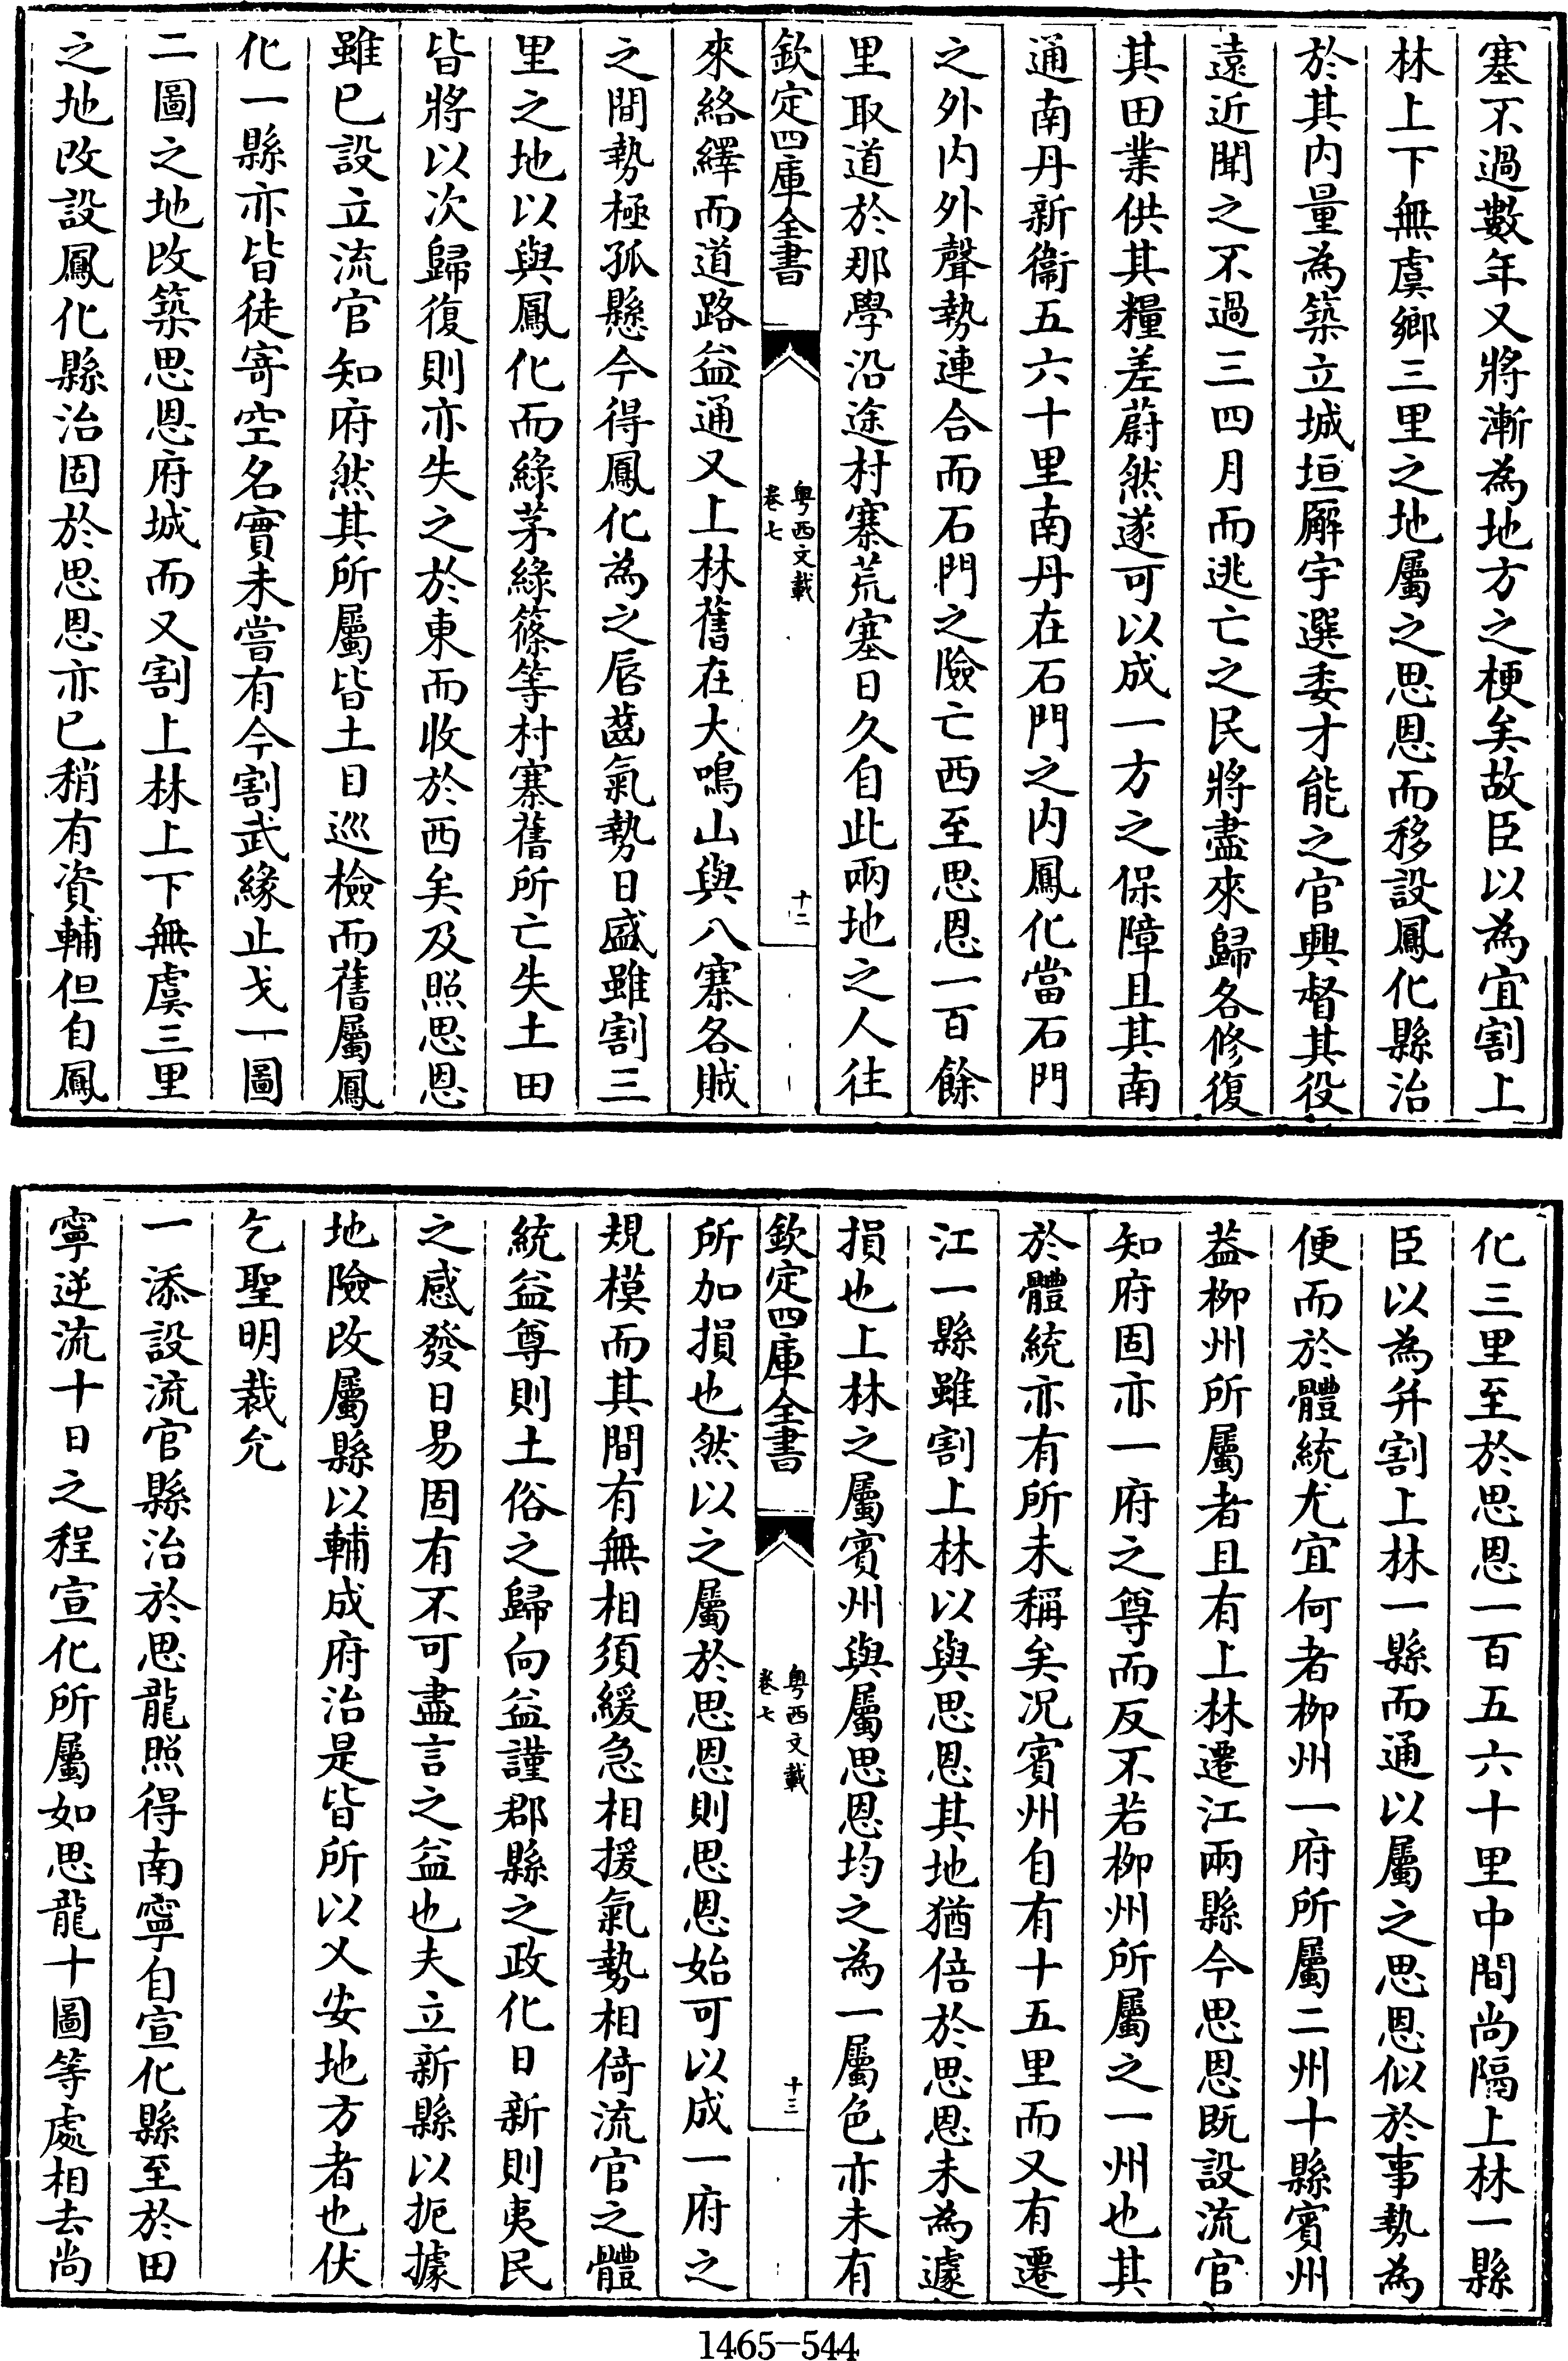 塞不過數年又將漸為地方之梗矣故臣以為宜割上
林上下無虞鄉三里之地屬之思恩而移設鳳化縣治
於其内量為築立城垣廨宇選委才能之官興督其役
遠近聞之不過三四月而逃亡之民將盡來歸各修復
其田業供其糧差蔚然遂可以成一方之保障且其南
通南丹新衞五六十里南丹在石門之内鳳化當石門
之外内外聲勢連合而石門之險亡西至思恩一百餘
里取道於那學沿途村寨荒塞日久自此兩地之人往
欽定四庫全書
粤西文載
卷七
十二
來絡繹而道路益通又上林舊在大鳴山與八寨各賊
之間勢極孤懸今得鳳化為之唇齒氣勢日盛雖割三
里之地以與鳳化而綠茅綠篠等村寨舊所亡失土田
皆將以次歸復則亦失之於東而收於西矣及照思恩
雖已設立流官知府然其所屬皆土目巡檢而舊屬鳳
化一縣亦皆徒寄空名實未嘗有今割武緣止戈一圖
二圖之地改築思恩府城而又割上林上下無虞三里
之地改設鳳化縣治固於思恩亦已稍有資輔但自鳳
化三里至於思恩一百五六十里中間尚隔上林一縣
臣以為并割上林一縣而通以屬之思恩似於事勢為
便而於體統尤宜何者柳州一府所屬二州十縣賓州
葢柳州所屬者且有上林遷江兩縣今思恩既設流官
知府固亦一府之尊而反不若柳州所屬之一州也其
於體統亦有所未稱矣况賓州自有十五里而又有遷
江一縣雖割上林以與思恩其地猶倍於思恩未為遽
損也上林之屬賓州與屬思恩均之為一屬色亦未有
欽定四庫全書
粤西文載
卷七
十三
所加損也然以之屬於思恩則思恩始可以成一府之
規模而其間有無相須緩急相援氣勢相倚流官之體
統益尊則土俗之歸向益謹郡縣之政化日新則夷民
之感發日易固有不可盡言之益也夫立新縣以扼據
地險改屬縣以輔成府治是皆所以乂安地方者也伏
乞聖明裁允
一添設流官縣治於思龍照得南寧自宣化縣至於田
寧逆流十日之程宣化所屬如思龍十圖等處相去尚
1465-544